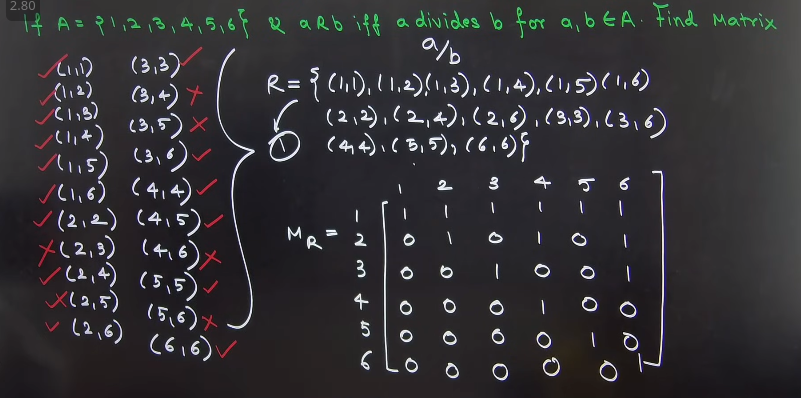 2.80
If A = {1,2,3,4,5,6} & aRb iff a divides b for a,b ∈ A. Find Matrix
a/b
(1,1) (3,3)
(1,2) (3,4)
(1,3) (3,5)
(1,4) (3,6)
(1,5) (4,4)
(1,6) (4,5)
(2,2) (4,6)
(2,3) (5,5)
(2,4) (5,6)
(2,5) (6,6)
(2,6)
R = {(1,1),(1,2)(1,3),(1,4),(1,5)(1,6)
(2,2),(2,4),(2,6),(3,3),(3,6)
(4,4),(5,5),(6,6)}
1
1 2 3 4 5 6
1 1 1 1 1 1 1
M_R = 2 0 1 0 1 0 1
3 0 0 1 0 0 1
4 0 0 0 1 0 0
5 0 0 0 0 1 0
6 0 0 0 0 0 1